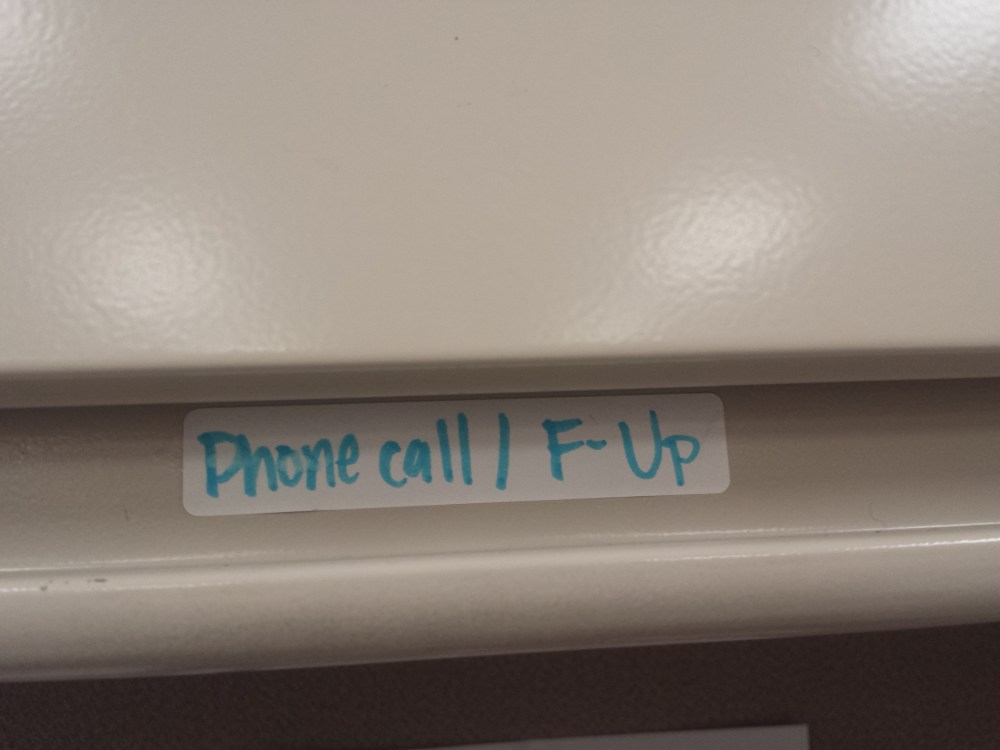 Phone call / F-Up